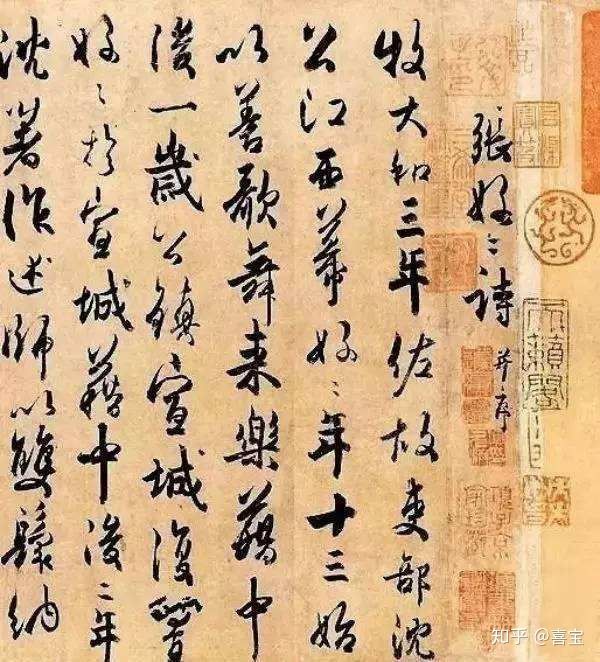 張好〻詩 并序
牧大和三年佐故吏部沈
公江西幕好〻年十三始
以善歌舞来樂藉中
後一歲公鎮宣城復置
好〻於宣城藉中後二年
沈著作述師以雙鬟納
知乎 @喜宝